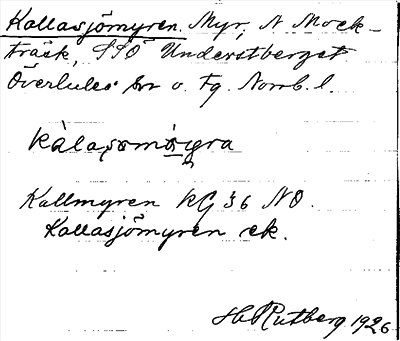 Kallasjömyren. Myr, N Mock-
träsk, SSO Understberget
Överlules sn o. tg. Nornb. l.
Kallmyren KG 36 NO.
Kallasjömyren ek.
H Rutberg 1926